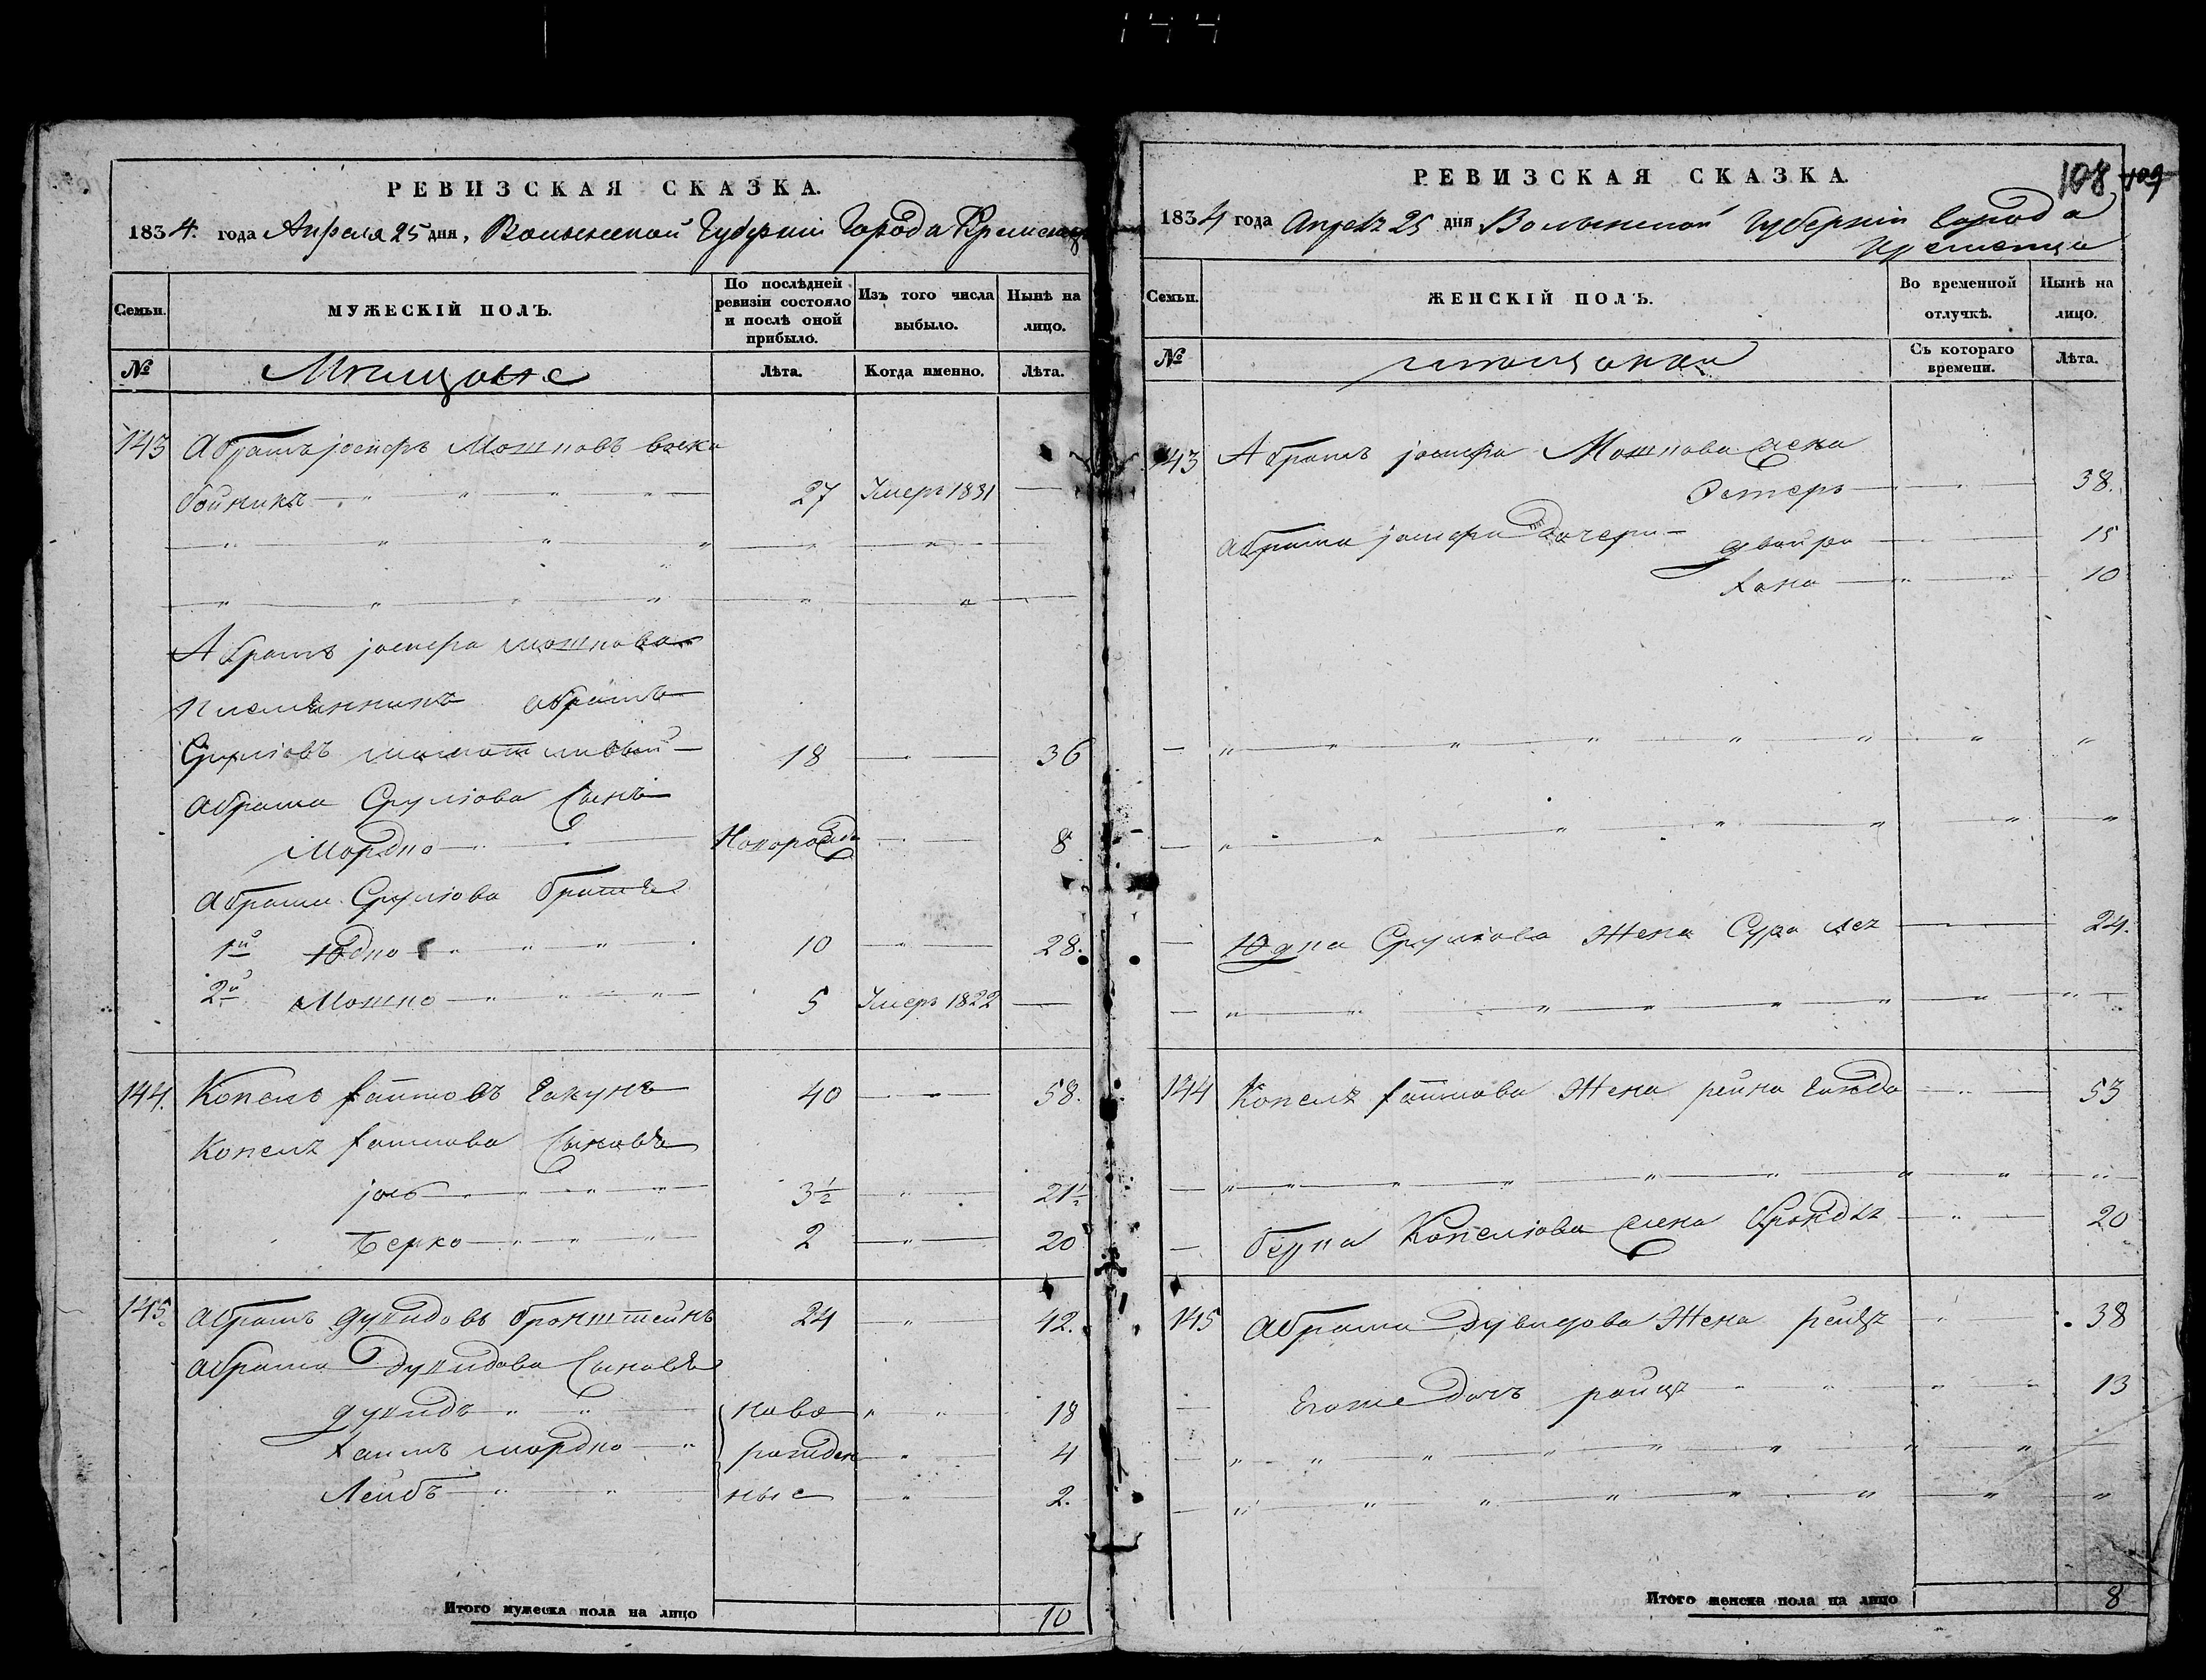 144
РЕВИЗСКАЯ СКАЗКА.
1834. года Апреля 25 дня, Волынской Губерніи Города Кременца
Семьи.
МУЖЕСКІЙ ПОЛЪ.
По послѣдней ревизіи состояло и послѣ оной прибыло.
Изъ того числа выбыло.
Нынѣ на лицо.
№
Мѣщане
Лѣта.
Когда именно.
Лѣта.
143 Абрамъ Іосифъ Мошковъ
27 Умеръ 1831
Абрамъ Іосифа Мошкова
племянникъ Абрамъ
Сруліовъ 18 36
Абрама Сруліова Сынъ
Мордко 8
Абрама Сруліова братья
1й Юдко 10 28.
2й Мошко 5 Умеръ 1822
144. Копель Хаимовъ 40 58.
Копеля Хаимова Сыновья
3½ 21½
Берко 2 20
145. Абрамъ Дувидовъ Бронштейнъ 24 42.
Абрама Дувидова Сыновья
Дувидъ ново 18
Хаимъ Мордко рожден 4
Лейбъ ные 2.
Итого мужеска пола на лицо 10
РЕВИЗСКАЯ СКАЗКА.
108 109
1834 года Апреля 25 дня Волынской Губерніи Города
Кременца
Семьи.
ЖЕНСКІЙ ПОЛЪ.
Во временной отлучкѣ.
Нынѣ на лицо.
№
мѣщанки
Съ котораго времени.
Лѣта.
143 Абрамъ Іосифа Мошкова Жена
Эстеръ 38.
Абрама Іосифа Дочери Двойра 15
Хана 10
Юдка Сруліова Жена Сура Лея 24.
144 Копеля Хаимова Жена 53
Берка Копеліова Жена 20
145 Абрама Дувидова Жена 38
Егоже Дочь 13
Итого женска пола на лицо 8